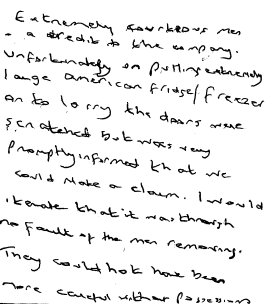 Extremely courteous men
- a credit to the company.
Unfortunately on putting extremely
large american fridge/freezer
on to lorry the doors were
scratched but was very
promptly informed that we
could make a claim. I would
iterate that it was through
no fault of the men removing.
They could not have been
more careful with our possessions